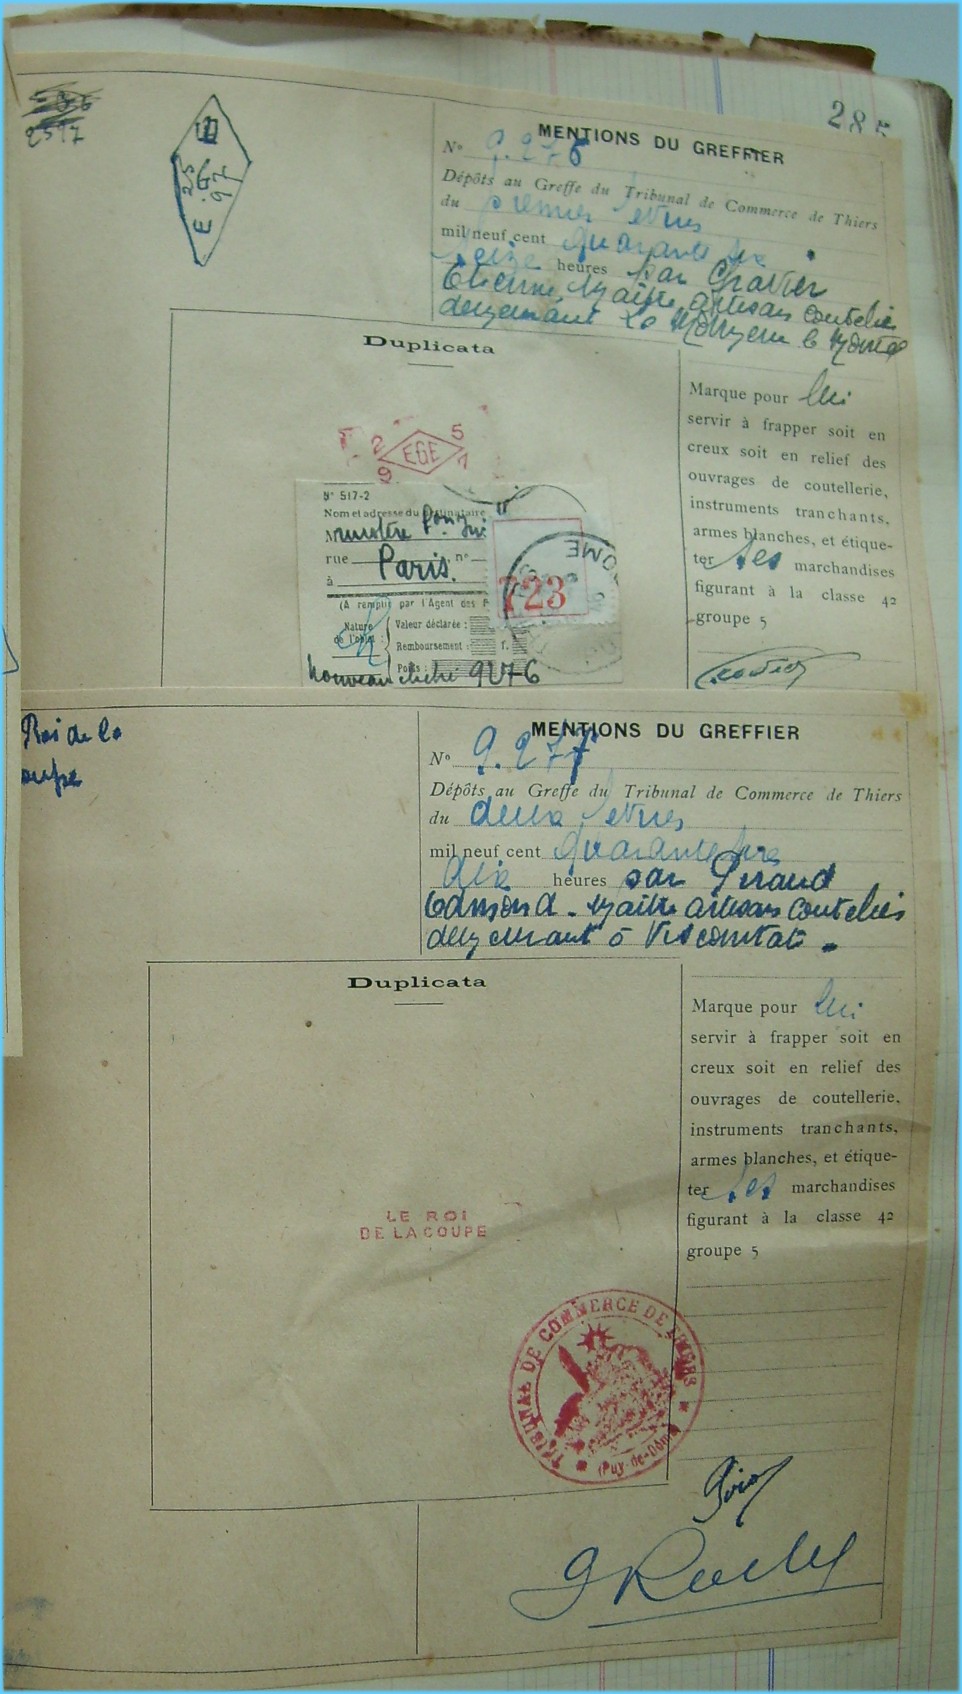 285
2597
E G E
25
97
MENTIONS DU GREFFIER
N° 9.276
Dépôts au Greffe du Tribunal de Commerce de Thiers
du premier
mil neuf cent quarante
seize heures par
Etienne, Maître artisan coutelier
demeurant
Duplicata
2 EGE 5
9 7
N° 517-2
Nom et adresse du destinataire
M
rue n°
à Paris.
(A remplir par l'Agent des P
Nature
de l'objet :
Valeur déclarée :
Remboursement : f.
Poids :
723
nouveau cliché 9276
Marque pour lui
servir à frapper soit en
creux soit en relief des
ouvrages de coutellerie,
instruments tranchants,
armes blanches, et étique-
ter ses marchandises
figurant à la classe 42
groupe 5
Roi de la
oupe
MENTIONS DU GREFFIER
N° 9.277
Dépôts au Greffe du Tribunal de Commerce de Thiers
du deux
mil neuf cent quarante
dix heures par
Edmond - Maître artisan coutelier
demeurant à Viscomtat.
Duplicata
LE ROI
DE LA COUPE
Marque pour lui
servir à frapper soit en
creux soit en relief des
ouvrages de coutellerie,
instruments tranchants,
armes blanches, et étique-
ter ses marchandises
figurant à la classe 42
groupe 5
TRIBUNAL DE COMMERCE DE THIERS
(Puy-de-Dôme)